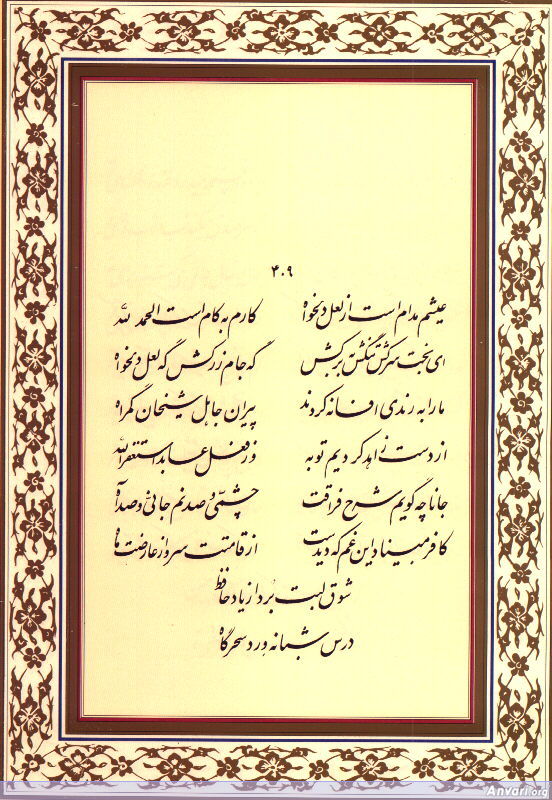 ۴۰۹
عیشم مدام است از لعل دلخواه کارم به کام است الحمد لله
ای بخت سرکش تنگش ببر کش گه جام زر کش گه لعل دلخواه
ما را به رندی افسانه کردند پیران جاهل شیخان گمراه
از دست زاهد کردیم توبه وز فعل عابد استغفرالله
جانا چه گویم شرح فراقت چشمی و صد نم جانی و صد آه
کافر مبیناد این غم که دیدست از قامتت سرو از عارضت ماه
شوق لبت برد از یاد حافظ
درس شبانه ورد سحرگاه
Anvari.org